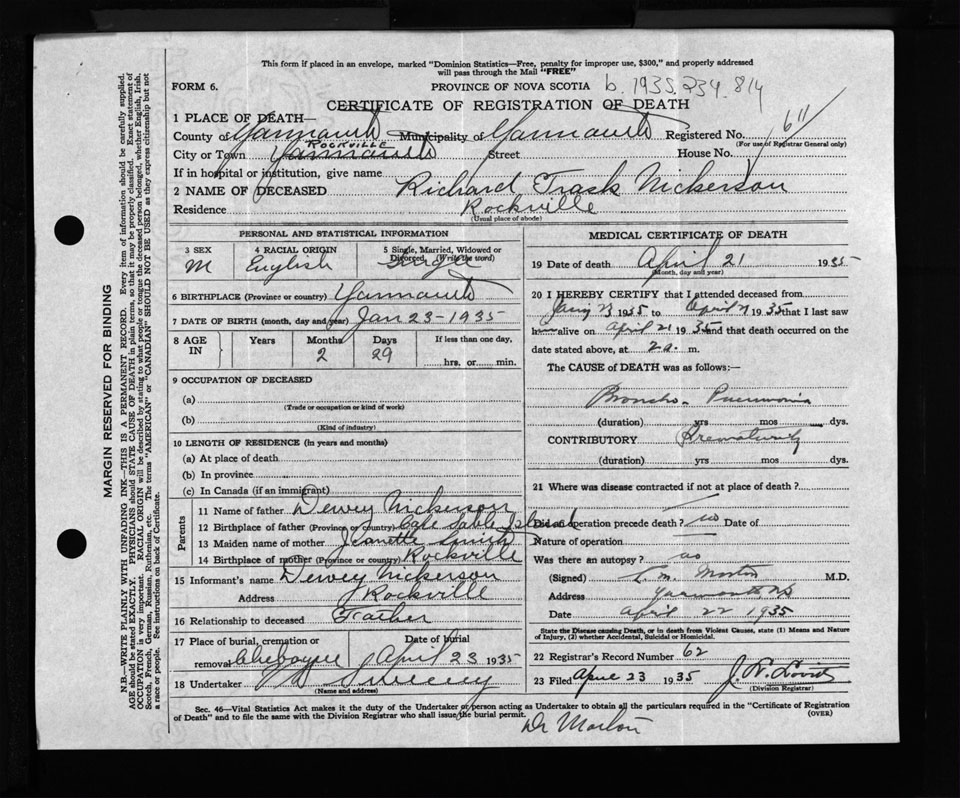 This form if placed in an envelope, marked "Dominion Statistics—Free, penalty for improper use, $300," and properly addressed
will pass through the Mail "FREE"
FORM 6.
PROVINCE OF NOVA SCOTIA
b. 1935. 234. 814
CERTIFICATE OF REGISTRATION OF DEATH
611
1 PLACE OF DEATH—
County of Yarmouth Municipality of Yarmouth Registered No.
(For use of Registrar General only)
ROCKVILLE
City or Town Yarmouth Street House No.
If in hospital or institution, give name
2 NAME OF DECEASED Richard Trask Nickerson
Residence Rockville
(Usual place of abode)
PERSONAL AND STATISTICAL INFORMATION
3 SEX M
4 RACIAL ORIGIN English
5 Single, Married, Widowed or Divorced. (Write the word) Single
6 BIRTHPLACE (Province or country) Yarmouth
7 DATE OF BIRTH (month, day and year) Jan 23-1935
8 AGE IN Years Months 2 Days 29 If less than one day, hrs. or min.
9 OCCUPATION OF DECEASED
(a)
(Trade or occupation or kind of work)
(b)
(Kind of industry)
10 LENGTH OF RESIDENCE (in years and months)
(a) At place of death
(b) In province
(c) In Canada (if an immigrant)
Parents
11 Name of father Dewey Nickerson
12 Birthplace of father (Province or country) Cape Sable Island
13 Maiden name of mother Jeanette Smith
14 Birthplace of mother (Province or country) Rockville
15 Informant's name Dewey Nickerson
Address Rockville
16 Relationship to deceased Father
17 Place of burial, cremation or removal Chebogue Date of burial April 23 1935
18 Undertaker Sweeny
(Name and address)
MEDICAL CERTIFICATE OF DEATH
19 Date of death April 21 1935
(Month, day and year)
20 I HEREBY CERTIFY that I attended deceased from
23 1935 to April 1935 that I last saw
him alive on April 21 1935 and that death occurred on
date stated above, at 2 a. m.
The CAUSE of DEATH was as follows:—
Broncho-Pneumonia
(duration) yrs mos dys.
CONTRIBUTORY Prematurity
(duration) yrs mos dys.
21 Where was disease contracted if not at place of death?
Did an operation precede death? no Date of
Nature of operation
Was there an autopsy? no
(Signed) L. M. Morton M.D.
Address Yarmouth NS
Date April 22 1935
State the Disease causing Death, or in death from Violent Causes, state (1) Means and Nature
of Injury, (2) whether Accidental, Suicidal or Homicidal.
22 Registrar's Record Number 62
23 Filed April 23 1935
(Division Registrar)
Sec. 46—Vital Statistics Act makes it the duty of the Undertaker or person acting as Undertaker to obtain all the particulars required in the "Certificate of Registration
of Death" and to file the same with the Division Registrar who shall issue the burial permit.
(OVER)
Dr Morton
MARGIN RESERVED FOR BINDING
N.B.—WRITE PLAINLY WITH UNFADING INK—THIS IS A PERMANENT RECORD. Every item of information should be carefully supplied.
AGE should be stated EXACTLY. PHYSICIANS should STATE CAUSE OF DEATH in plain terms, so that it may be properly classified. Exact statement of
OCCUPATION is very important. RACIAL ORIGIN will be described by stating to what people or tongue the deceased person belonged, whether English, Irish,
Scotch, French, German, Russian, Ruthenian, etc. The terms "AMERICAN" or "CANADIAN" SHOULD NOT BE USED as they express citizenship but not
a race or people. See instructions on back of Certificate.